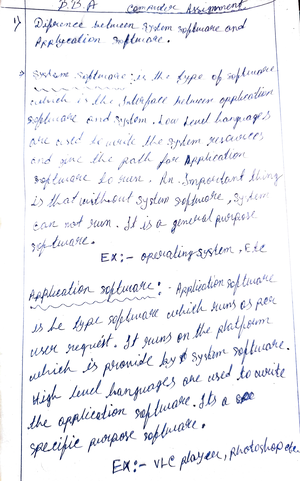 B.B.A Computer Assignment
1) Diference between System software and
Application software.
System software :- is the type of software
which is the Interface between application
software and system. Low Level languages
are used to write the system resources
and give the path for Application
software to run. An Important thing
is that without System software, System
can not run. It is a general purpose
software.
EX:- operating system, Etc
Application software :- Application software
is he type software which runs as per
user request. It runs on the platform
which is provide by system software.
High level languages are used to write
the application software. Its a
specific purpose software.
EX:- VLC player, photoshop etc